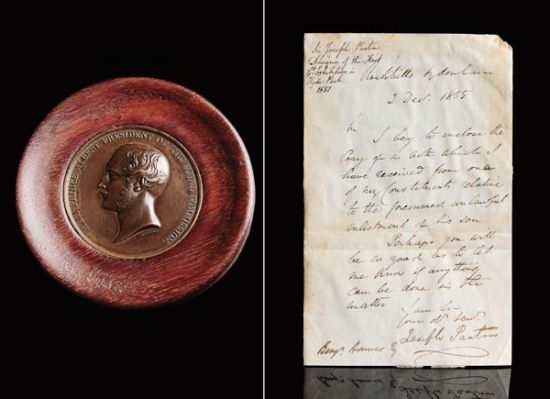 H.R.H. PRINCE ALBERT PRESIDENT OF THE ROYAL COMMISSION
Sir Joseph Paxton
Designer of the
Exhibition in
Hyde Park
1851
Rockhills Sydenham
3 Dec. 1855
Sir
I beg to enclose the
Copy of a note which I
have received from one
of my Constituents relative
to the presumed unlawful
enlistment of his son
Perhaps you will
be so good as to let
me know if anything
can be done in the
matter
I am Sir
your obt Servt
Joseph Paxton
Benjn Hawes